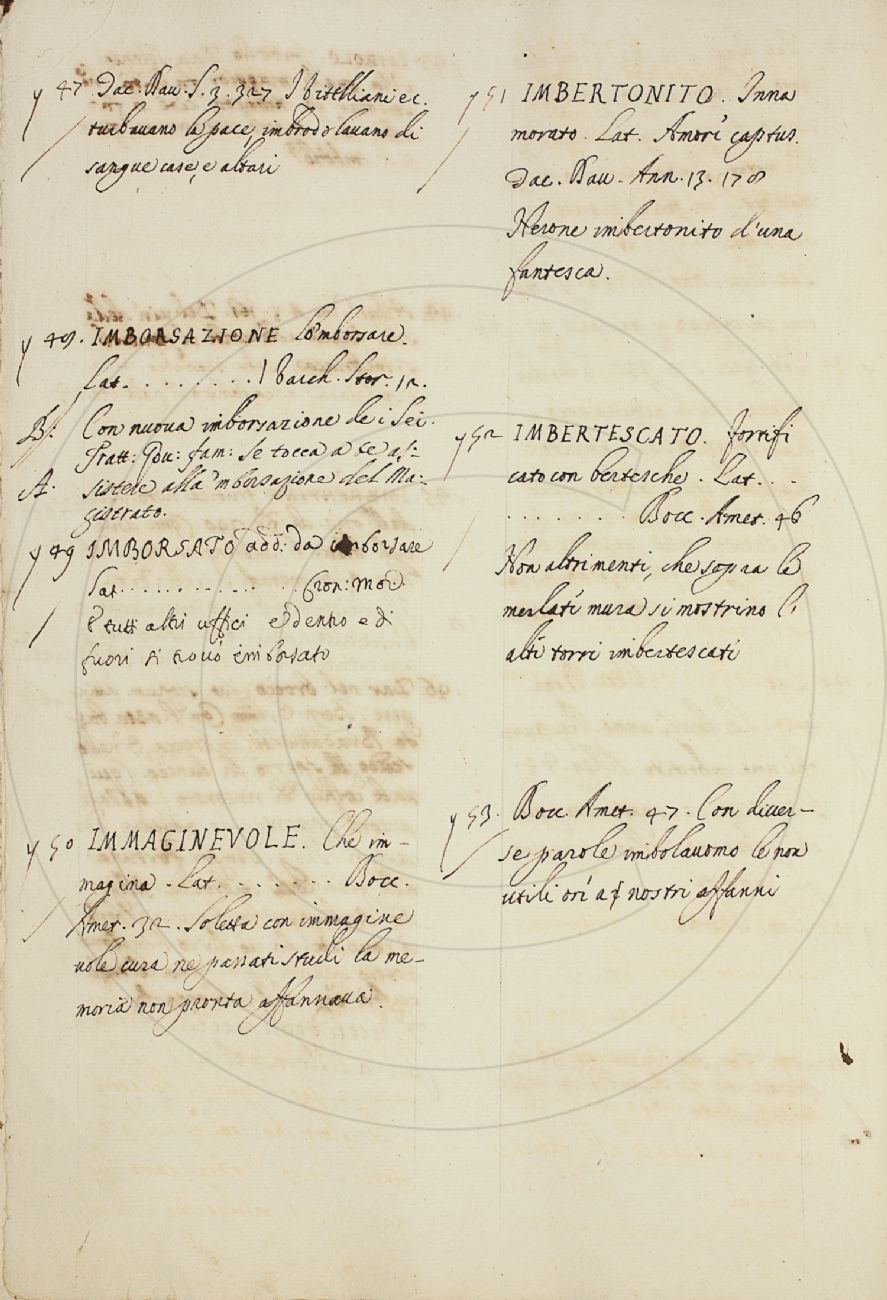 y 47 Dac. Dav. S. 3. 327 I Vitelliani ec.
turbavano la pace, imbrodolavano di
sangue case, e altari
y 49. IMBORSAZIONE Lo'mborsare.
Lat. . . . . . . . . Varch. Stor. 12.
B. Con nuova imborsazione dei Sei.
Tratt: Gov: fam: Se tocca a te as-
A. sistere alla 'mborsazione del Ma-
gistrato.
y 49 IMBORSATO add: da imborsare
Lat . . . . . . . . . . . Cron: Mor.
E tutti altri uffici e dentro e di
fuori si trovò imborsato
y 50 IMMAGINEVOLE. Che im-
magina. Lat. . . . . . . . Bocc.
Amet. 32. Soletta con immagine
vole cura ne passati studi la me-
moria non pronta affannava.
y 51 IMBERTONITO. Inna
morato. Lat. Amori captus.
Dac. Dav. Ann. 13. 178
Nerone imbertonito d'una
fantesca.
y 52 IMBERTESCATO. Fortifi
cato con bertesche. Lat. . .
. . . . . . . . Bocc. Amet. 46
Non altrimenti, che sopra le
merlati mura si mostrino l'
alti torri imbertescati
y 53. Bocc. Amet. 47. Con diver-
se parole imbolavomo le non
utili ori a nostri affanni